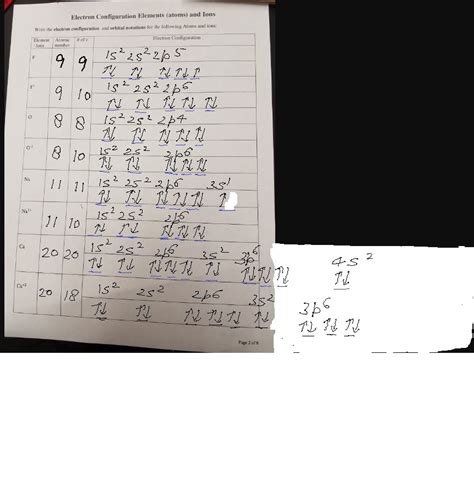 Electron Configuration Elements (atoms) and Ions
Write the electron configuration and orbital notations for the following Atoms and Ions:
Element Ions Atomic number # of e Electron Configuration
F 9 9 1s² 2s² 2p⁵
↑↓ ↑↓ ↑↓ ↑↓ ↑
F⁻ 9 10 1s² 2s² 2p⁶
↑↓ ↑↓ ↑↓ ↑↓ ↑↓
O 8 8 1s² 2s² 2p4
↑↓ ↑↓ ↑↓ ↑↓ ↑↓
O⁻² 8 10 1s² 2s² 2p⁶
↑↓ ↑↓ ↑↓ ↑↓ ↑↓
Na 11 11 1s² 2s² 2p⁶ 3s¹
↑↓ ↑↓ ↑↓ ↑↓ ↑↓ ↑
Na¹⁺ 11 10 1s² 2s² 2p⁶
↑↓ ↑↓ ↑↓ ↑↓ ↑↓
Ca 20 20 1s² 2s² 2p⁶ 3s² 3p⁶ 4s²
↑↓ ↑↓ ↑↓ ↑↓ ↑↓ ↑↓ ↑↓ ↑↓ ↑↓ ↑↓
Ca⁺² 20 18 1s² 2s² 2p6 3s² 3p⁶
↑↓ ↑↓ ↑↓ ↑↓ ↑↓ ↑↓ ↑↓ ↑↓ ↑↓
Page 2 of 8